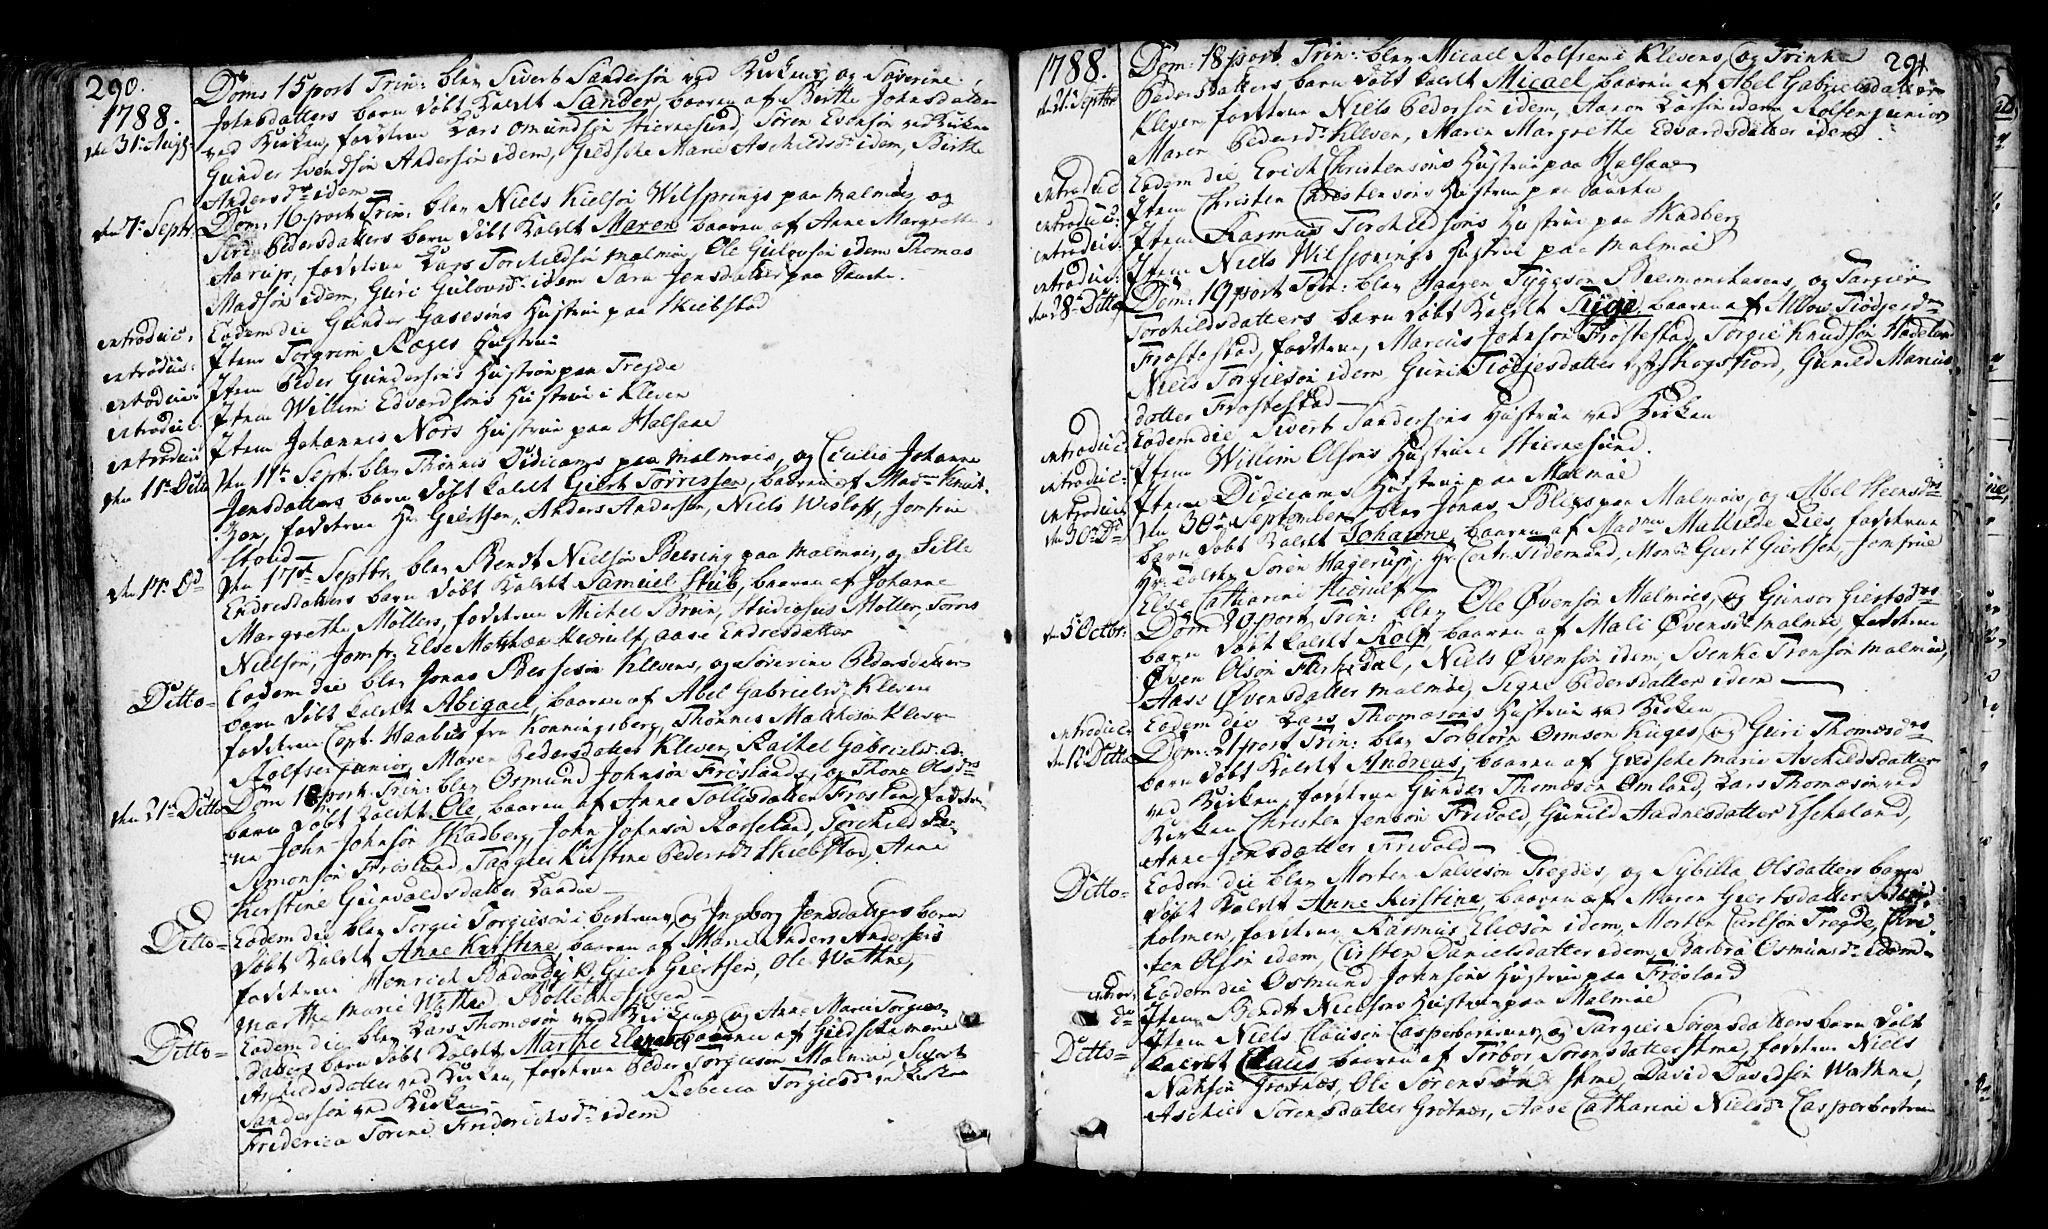 290.
1788.
den 31te Aug:
Dom: 15 post Trin: blev Sivert Sandersøn ved Kirken, og Severine
Johnsdatters barn døbt kaldt Sander, baaren af Berthe Johnsdatter
ved Kirken, faddrene Lars Omundsøn Hiernesund, Søren Evensøn ved Kirken
Gunder Svendsøn Andersøn idem, Giedsche Marie Aschildsdr idem, Berthe
Andersdr idem
den 7de Septr.
Dom: 16 post Trin: blev Niels Kielsøn Wilsprings paa Malmøe, og
Siri Pedersdatters barn døbt kaldt Maren baaren af Anne Margrethe
Aarup, faddrene Lars Torchildsøn Malmøe, Ole Gulovsøn idem Thomas
Madsøn idem, Guri Gulovsdr idem Sara Jensdatter paa
introduc:
Eodem die Gunder Hustrue paa Skiebstad
introduc:
Item Torgrim Roeges Hustrue
introduc:
Item Peder Gundersøns Hustrue paa Tregde
introduc:
Item Willum Edvardsøns Hustrue i Kleven
introduc:
Item Johannes Nors Hustrue paa Halsaae
den 11te Ditto
den 11te Septr. blev Thønnes Didicams paa Malmøe, og Cecilia Johanne
Jensdatters barn døbt kaldt Giert Torrissen, baaren af Madme
faddrene Hr Giertsen, Anders Andersen, Niels Wisloff, Jomfrue
Stoud
den 17de Do
den 17de Septbr. blev Bendt Nielsøn Berring paa Malmøe, og Sille
Endresdatters barn døbt kaldt Samuel Stub, baaren af Johanne
Margrethe Møllers, faddrene Michel Bruun, Studiosus Møller, Torris
Nielsøn, Jomfr. Else Mathea Hiorulf, Aase Endresdatter
Ditto
Eodem die blev Jonas Bessesøn Klevens, og Severine Pedersdatters
barn døbt kaldt Abigael, baaren af Abel Gabrielsdr Kleven
faddrene Capt. Haabus fra Konningsberg, Thønnes Matthisøn Kleven
Rolfsen junior, Maren Pedersdatter Kleven, Rachel Gabrielsdr idem
den 21de Ditto
Dom 18 post Trin: blev Osmund Johnsøn Frøslands, og Thone Olsdrs
barn døbt kaldt Ole baaren af Anne Tollisdatter Frøsland, faddre-
ne John Johnsøn Skadberg, John Johnsøn Rosseland, Torchild
Simonsøn Frøsland, Targier Kirstine Pedersdr Skiebstad, Anne
Kirstine Gunvaldsdatter
Ditto
Eodem die blev Torgie Torgiesøn i bostrene, og Ingeborg Jensdatters barn
døbt kaldt Anne Kirstine, baaren af Marie Anders Andersens
faddrene Henrich Giert Giertsen, Ole Wathne,
Marthe Marie Wathne,
Ditto
Eodem die blev Lars Thomæsøn ved Kirken, og Anne Marie Torgies-
datters barn døbt kaldt Marthe Elisabeth, baaren af Giedske Marie
Aschildsdatter ved Kirken, faddrene Peder Torgiesøn Malmøe, Sivert
Sandersøn ved Kirken
Rebecca Torgiesdr ved Kirken
Friderica Torine Friderichsdr idem
1788.
291
den 21de Septbr
Dom: 18 post Trin: blev Micael Rolfsen i Klevens, og Trinke
Pedersdatters barn døbt kaldt Micael, baaren af Abel Gabrielsdatter
Kleven faddrene Niels Pedersøn idem, Aaron Larsøn idem, Rolfsen junior
Maren Pedersdr Kleven, Maren Margrethe Edvardsdatter idem
introduc
Eodem die Erich Christensøns Hustrue paa Halsaae
introduc:
Item Christen Christensøns Hustrue paa
introduc:
Item Rasmus Torchildsøns Hustrue paa Skadberg
introduc:
Item Niels Wilsprings Hustrue paa Malmøe
den 28de Ditto
Dom: 19 post Trin: blev Haagen Tygesøn og Targier
Torchildsdatters barn døbt kaldt Tyge, baaren af
Frøstestad, faddrene, Marcus Johnsøn Frøstestad, Torgie Knudsøn
Niels Torgiesøn idem, Guri Tiødjesdatter Skogsfiord, Gunild Marcus-
datter Frøstestad
introduc:
Eodem die Sivert Sandersøns Hustrue ved Kirken
introduc:
Item Willum Olsøns Hustrue Hiernesund.
introduc:
Item Didicams Hustrue paa Malmøe
den 30te Do
den 30te September blev Jonas Blix paa Malmøe, og Abel Steensdrs
barn døbt kaldt Johanne, baaren af Madme Mathilde Lies, faddrene
Hr. Søren Hagerup, Hr. Tidemand, Monsr Giert Giertsen, Jomfrue
Else Catharine Hiorulf
den 5 Octbr:
Dom 20 post Trin: blev Ole Øvensøn Malmøes, og Gunvor Giertsdrs
barn døbt kaldt Rolf, baaren af Mali Øvensdr Malmøe, faddrene
Øven Olsøn Fiskedal, Niels Øvensøn idem, Svenke Tronsøn Malmøe,
Aase Øvensdatter Malmøe, Signe Pedersdatter idem
introduc:
Eodem die Lars Thomæsøns Hustrue ved Kirken
den 12 Ditto
Dom: 21 post Trin: blev Torbiørn Osmsøn og Guri Thomæsdrs
barn døbt kaldt Andreas, baaren af Giedsche Marie Aschildsdatter
ved Kirken, faddrene Gunder Thomæsøn Omland, Lars Thomæsøn ved
Kirken Christen Jensøn Frivold, Gunild Aadnesdatter Escheland,
Anne Jensdatter Frivold
Ditto
Eodem die blev Morten Salvesøn Tregdes, og Sybilla Olsdatters barn
døbt kaldt Anne Kirstine, baaren af Maren Giertsdatter
holmen, faddrene, Rasmus Eliesøn idem, Morten Carlsøn Tregde, Chri-
sten Olsøn idem, Cirsten Danielsdatter idem, Barbra Osmunsdr idem
introd:
Eodem die Osmund Johnsøns Hustrue paa Frøsland
do
Item Bendt Nielsøns Hustrue paa Malmøe
Ditto
Item Niels Clausøn Casperbostrene, og Targier Sørensdatters barn døbt
kaldt Claus baaren af Torbor Sørensdatter Skme, faddrene Niels
Nahsøn Grotnæs, Ole Sørensøn Skme, David Davidsøn Wathne,
Aschier Sørensdatter Grotnæs, Aase Catharine Nielsdr Casperbostrene